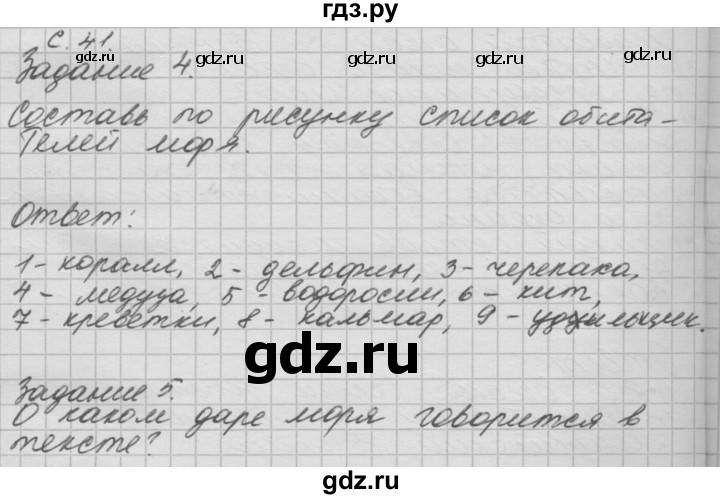 гдз.ру
с. 41.
Задание 4.
gdz.ru gdz.ru gdz.ru
Составь по рисунку список обита-
телей моря.
Ответ:
1 - коралл, 2 - дельфин, 3 - черепаха,
4 - медуза, 5 - водоросли, 6 - кит,
7 - креветки, 8 - кальмар, 9 - удильщик.
gdz.ru
Задание 5.
О каком даре моря говорится в
тексте?
gdz.ru gdz.ru gdz.ru
gdz.ru